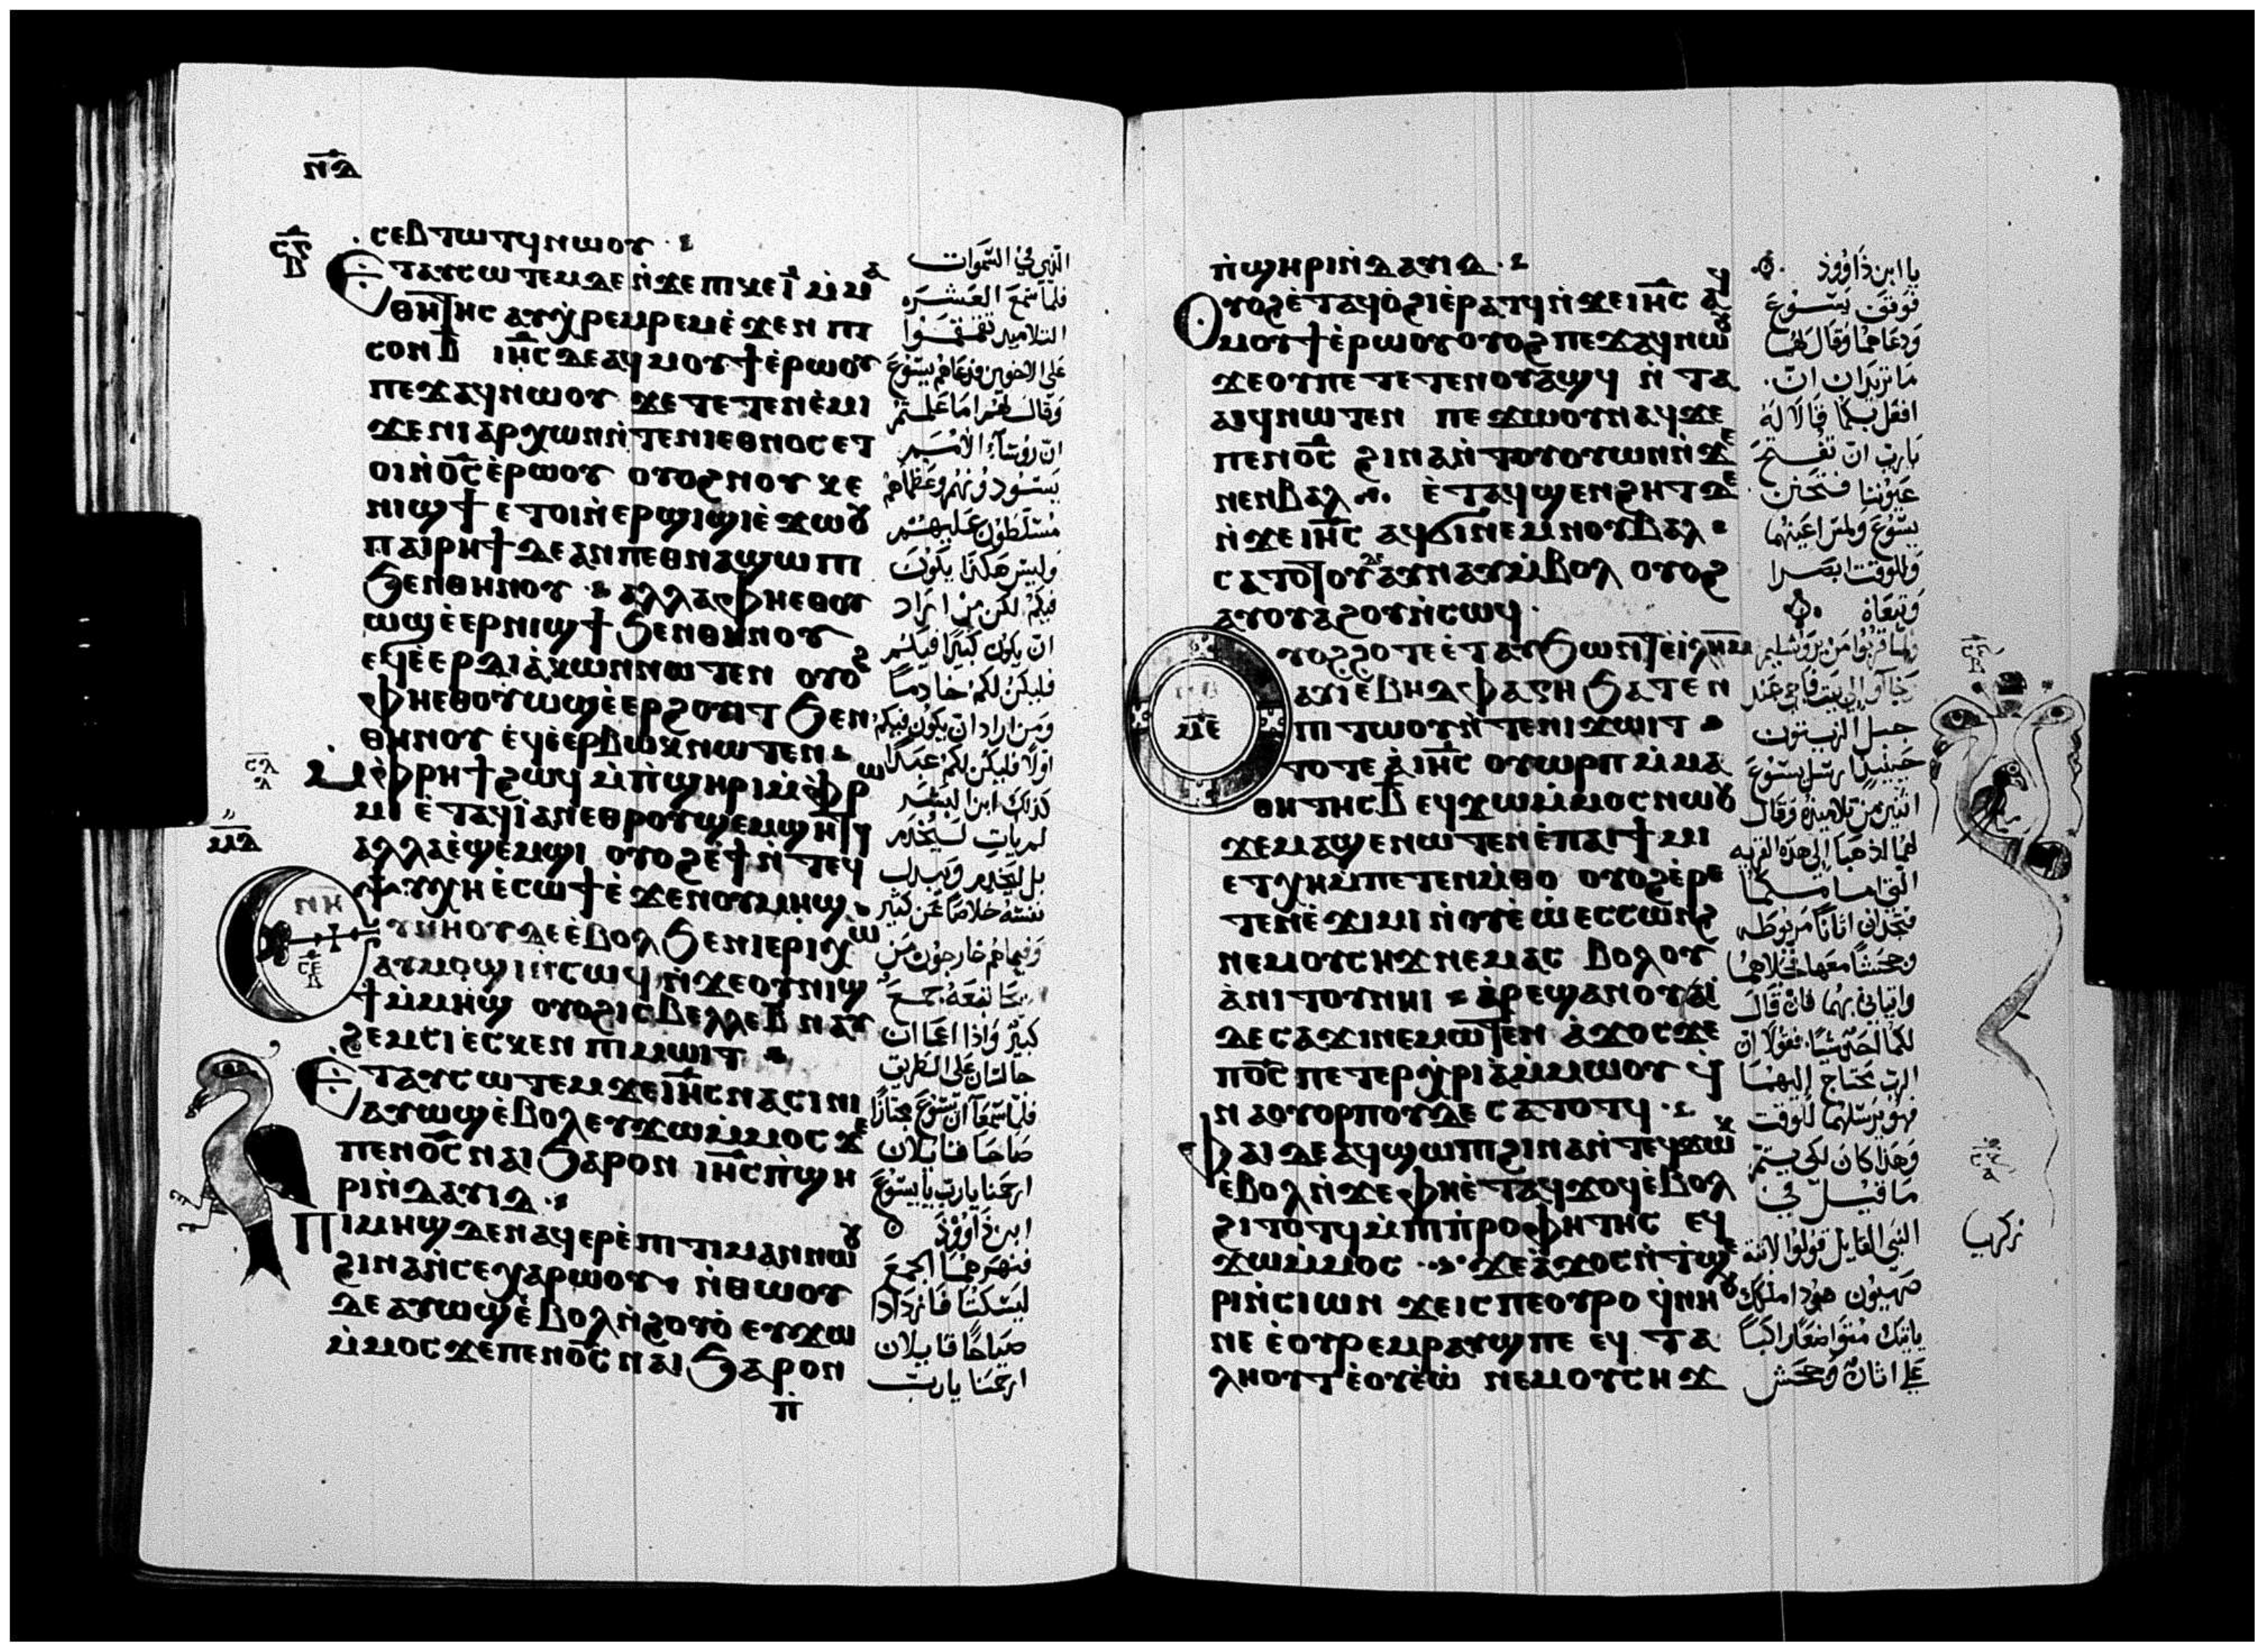 ⲛ̅ⲇ̅
ⲥⲉⲃⲧⲱⲧϥ ⲛⲱⲟⲩ
ⲉⲧⲁⲩⲥⲱⲧⲉⲙ ⲇⲉ ⲛ̀ϫⲉ ⲡⲓⲕⲉⲓ̅ ⲙ̀ⲙⲁ
ⲑⲏⲧⲏⲥ ⲁⲩⲭⲣⲉⲙⲣⲉⲙ ⲉ̀ϫⲉⲛ ⲡⲓ
ⲥⲟⲛ ⲃ̅ ⲓⲏ̅ⲥ ⲇⲉ ⲁϥⲙⲟⲩϯ ⲉ̀ⲣⲱⲟⲩ
ⲡⲉϫⲁϥ ⲛⲱⲟⲩ ϫⲉ ⲧⲉⲧⲉⲛⲉ̀ⲙⲓ
ϫⲉ ⲛⲓⲁⲣⲭⲱⲛ ⲛ̀ⲧⲉ ⲛⲓⲉⲑⲛⲟⲥ ⲉⲧ
ⲟⲓ ⲛ̀ⲟ̅ⲥ ⲉ̀ⲣⲱⲟⲩ ⲟⲩⲟϩ ⲛⲟⲩⲕⲉ
ⲛⲓϣϯ ⲉⲧⲟⲓ ⲛ̀ⲉⲣϣⲓϣⲓ ⲉ̀ϫⲱⲟⲩ
ⲡⲁⲓⲣⲏϯ ⲇⲉ ⲁⲛ ⲡⲉⲑⲛⲁϣⲱⲡⲓ
ϧⲉⲛ ⲑⲏⲛⲟⲩ ⲁⲗⲗⲁ ⲫⲏ ⲉⲑⲟⲩ
ⲱϣ ⲉ̀ⲉⲣⲛⲓϣϯ ϧⲉⲛ ⲑⲏⲛⲟⲩ
ⲉϥⲉ̀ⲉⲣⲇⲓⲁⲕⲱⲛ ⲛⲱⲧⲉⲛ ⲟⲩⲟϩ
ⲫⲏ ⲉⲑⲟⲩⲱϣ ⲉ̀ⲉⲣϩⲟⲩⲓⲧ ϧⲉⲛ
ⲑⲏⲛⲟⲩ ⲉϥⲉ̀ⲉⲣⲃⲱⲕ ⲛⲱⲧⲉⲛ
ⲙ̀ⲫⲣⲏϯ ϩⲱϥ ⲙ̀ⲡ̀ϣⲏⲣⲓ ⲙ̀ⲫⲣⲱ
ⲙⲓ ⲉⲧⲁϥⲓ̀ ⲁⲛ ⲉⲑⲣⲟⲩϣⲉⲙϣⲏⲧϥ
ⲁⲗⲗⲁ ⲉ̀ϣⲉⲙϣⲓ ⲟⲩⲟϩ ⲉ̀ϯ ⲛ̀ⲧⲉϥ
ⲯⲩⲭⲏ ⲉ̀ⲥⲱϯ ⲉ̀ϫⲉⲛ ⲟⲩⲙⲏϣ
ⲩⲛⲏⲟⲩ ⲇⲉ ⲉ̀ⲃⲟⲗ ϧⲉⲛ ⲓⲉⲣⲓⲭⲱ
ⲁⲩⲙⲟϣⲓ ⲛ̀ⲥⲱϥ ⲛ̀ϫⲉ ⲟⲩⲛⲓϣ
ϯ ⲙ̀ⲙⲏϣ ⲟⲩⲟϩ ⲓⲥ ⲃⲉⲗⲗⲉ ⲃ̅ ⲛⲁⲩ
ϩⲉⲙⲥⲓ ⲉⲥⲕⲉⲛ ⲡⲓⲙⲱⲓⲧ
ⲉⲧⲁⲩⲥⲱⲧⲉⲙ ϫⲉ ⲓⲏ̅ⲥ ⲛⲁⲥⲓⲛⲓ
ⲁⲩⲱϣ ⲉ̀ⲃⲟⲗ ⲉⲩϫⲱ ⲙ̀ⲙⲟⲥ ϫⲉ
ⲡⲉⲛⲟ̅ⲥ ⲛⲁⲓ ϧⲁⲣⲟⲛ ⲓⲏ̅ⲥ ⲡ̀ϣⲏ
ⲣⲓ ⲛ̀ⲇⲁⲩⲓⲇ
ⲡⲓⲙⲏϣ ⲇⲉ ⲛⲁϥⲉⲣⲉ̀ⲡⲓⲧⲓⲙⲁⲛ ⲛⲱⲟⲩ
ϩⲓⲛⲁ ⲛ̀ⲥⲉⲭⲁⲣⲱⲟⲩ ⲛ̀ⲑⲱⲟⲩ
ⲇⲉ ⲁⲩⲱϣ ⲉ̀ⲃⲟⲗ ⲛ̀ϩⲟⲩⲟ̀ ⲉⲩϫⲱ
ⲙ̀ⲙⲟⲥ ϫⲉ ⲡⲉⲛⲟ̅ⲥ ⲛⲁⲓ ϧⲁⲣⲟⲛ
ⲡ̀
الذين في السموات
فلما سمع العشره
التلاميذ تقمقموا
على الاخوين فدعاهم يسوع
وقال لهم اما علمتم
ان رؤساء الامم
يسودونهم وعظماهم
مسلطون عليهم
وليس هكذا يكون
فيكم لكن من اراد
ان يكون كبيرا فيكم
فليكن لكم خادما
ومن اراد ان يكون فيكم
اولا فليكن لكم عبدا
كذلك ابن البشر
لم يات ليخدم
بل ليخدم ويبدل
نفسه خلاصا عن كثير
وفيما هم خارجون من
ريحا تبعه جمع
كبير واذا اعميان
جالسان على الطريق
فلما سمعا ان يسوع مجتازا
صاحا قايلان
ارحمنا يارب يا يسوع
ابن داوود
فنهرهما الجمع
ليسكتا فازدادا
صياحا قايلان
ارحمنا يارب
ⲡ̀ϣⲏⲣⲓ ⲛ̀ⲇⲁⲩⲓⲇ
ⲟⲩⲟϩ ⲉ̀ⲧⲁϥⲟ̀ϩⲓ ⲉ̀ⲣⲁⲧϥ ⲛ̀ϫⲉ ⲓⲏ̅ⲥ ⲁϥ
ⲙⲟⲩϯ ⲉ̀ⲣⲱⲟⲩ ⲟⲩⲟϩ ⲡⲉϫⲁϥ ⲛⲱⲟⲩ
ϫⲉ ⲟⲩ ⲡⲉ ⲧⲉⲧⲉⲛⲟⲩⲁϣϥ ⲛ̀ⲧⲁ
ⲁⲓϥ ⲛⲱⲧⲉⲛ ⲡⲉϫⲱⲟⲩ ⲛⲁϥ ϫⲉ
ⲡⲉⲛⲟ̅ⲥ ϩⲓⲛⲁ ⲛ̀ⲧⲟⲩⲟⲩⲱⲛ ⲛ̀ϫⲉ
ⲛⲉⲛⲃⲁⲗ ⲉ̀ⲧⲁϥϣⲉⲛϩⲏⲧ ⲇⲉ
ⲛ̀ϫⲉ ⲓⲏ̅ⲥ ⲁϥϭⲓ ⲛⲉⲙ ⲛⲟⲩⲃⲁⲗ
ⲥⲁⲧⲟⲧⲟⲩ ⲁⲩⲛⲁⲩ ⲙ̀ⲃⲟⲗ ⲟⲩⲟϩ
ⲁⲩⲟⲩⲁϩⲟⲩ ⲛ̀ⲥⲱϥ
ⲩⲟϩ ϩⲟⲧⲉ ⲉ̀ⲧⲁⲩϧⲱⲛⲧ ⲉ̀ⲓ̀ⲗⲏ̅ⲙ
ⲁⲩⲓ̀ ⲉ̀ⲃⲏⲇⲫⲁⲅⲏ ϧⲁⲧⲉⲛ
ⲡⲓⲧⲱⲟⲩ ⲛ̀ⲧⲉ ⲛⲓϫⲱⲓⲧ
ⲧⲟⲧⲉ ⲁ̀ ⲓⲏ̅ⲥ ⲟⲩⲱⲣⲡ ⲙ̀ⲙⲁ
ⲑⲏⲧⲏⲥ ⲃ̅ ⲉϥϫⲱ ⲙ̀ⲙⲟⲥ ⲛⲱⲟⲩ
ϫⲉ ⲙⲁϣⲉⲛⲱⲧⲉⲛ ⲉ̀ⲡⲁⲓϯⲙⲓ
ⲉⲧⲭⲏ ⲙ̀ⲡⲉⲧⲉⲛⲙ̀ⲑⲟ ⲟⲩⲟϩ ⲉ̀ⲣⲉ
ⲧⲉⲛⲉ̀ϫⲓⲙⲓ ⲛ̀ⲟⲩⲉ̀ⲱ̀ ⲉⲥⲥⲱⲛϩ
ⲛⲉⲙ ⲟⲩⲥⲏϫ ⲛⲉⲙⲁⲥ ⲃⲟⲗⲟⲩ
ⲁ̀ⲛⲓⲧⲟⲩ ⲛⲏⲓ ⲁ̀ⲣⲉϣⲁⲛ ⲟⲩⲁⲓ
ⲇⲉ ⲥⲁϫⲓ ⲛⲉⲙⲱⲧⲉⲛ ⲁ̀ϫⲟⲥ ϫⲉ
ⲡⲟ̅ⲥ ⲡⲉⲧⲉⲣⲭⲣⲓⲁ ⲙ̀ⲙⲱⲟⲩ ϥ̀
ⲛⲁⲟⲩⲟⲣⲡⲟⲩ ⲇⲉ ⲥⲁⲧⲟⲧϥ
ⲫⲁⲓ ⲇⲉ ⲁϥϣⲱⲡⲓ ϩⲓⲛⲁ ⲛ̀ⲧⲉϥϫⲱⲕ
ⲉ̀ⲃⲟⲗ ⲛ̀ϫⲉ ⲫⲏ ⲉ̀ⲧⲁϥϫⲟϥ ⲉ̀ⲃⲟⲗ
ϩⲓⲧⲟⲧϥ ⲙ̀ⲡⲓⲡ̀ⲣⲟⲫⲏⲧⲏⲥ ⲉϥ
ϫⲱ ⲙ̀ⲙⲟⲥ ϫⲉ ⲁ̀ϫⲟⲥ ⲛ̀ⲧ̀ϣⲉ
ⲣⲓ ⲛ̀ⲥⲓⲱⲛ ϫⲉ ⲓⲥ ⲡⲉⲟⲩⲣⲟ ϥ̀ⲛⲏⲟⲩ
ⲛⲉ ⲉ̀ⲟⲩⲣⲉⲙⲣⲁⲩϣ ⲡⲉ ⲉϥⲧⲁ
ⲗⲏⲟⲩⲧ ⲉ̀ⲟⲩⲉ̀ⲱ̀ ⲛⲉⲙ ⲟⲩⲥⲏϫ
يا ابن داوود
فوقف يسوع
ودعاهما وقال لهما
ما تريدان ان
افعل بكما قالا له
يارب ان تفتح
عيوننا فتحنن
يسوع ولمس اعينهما
وللوقت ابصرا
وتبعاه
ولما قربوا من يروشليم
وجاوا الى بيت فاجي عند
جبل الزيتون
حينيذ ارسل يسوع
اثنين من تلاميذه وقال
لهما اذهبا الى هذه القريه
التي امامكما
فتجدان اتانا مربوطه
وجحشا معها فحلاهما
واتياني بهما فان قال
لكما احد شيا فقولا ان
الرب يحتاج اليهما
فهو يرسلهما للوقت
وهذا كان لكي يتم
ما قيل في
النبي القايل قولوا لابنة
صهيون هوذا ملكك
ياتيك متواضعا راكبا
على اتان وجحش
ⲙ̅ⲇ̅
ⲙ̅ⲉ̅